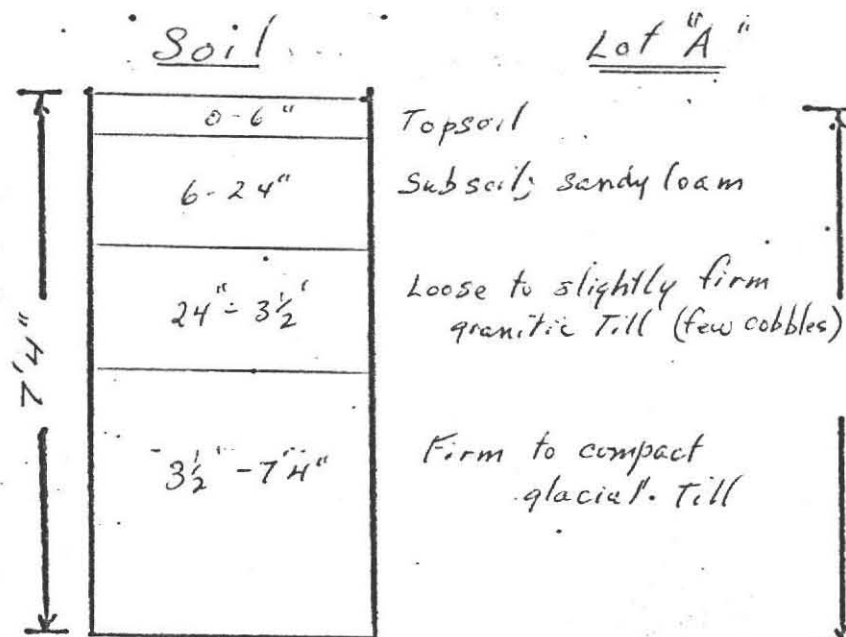 Soil
Lot "A"
0-6"
Topsoil
6-24"
Subsoil; sandy loam
24"- 3½'
Loose to slightly firm
granitic Till (few cobbles)
7'4"
3½' - 7'4"
Firm to compact
glacial. Till